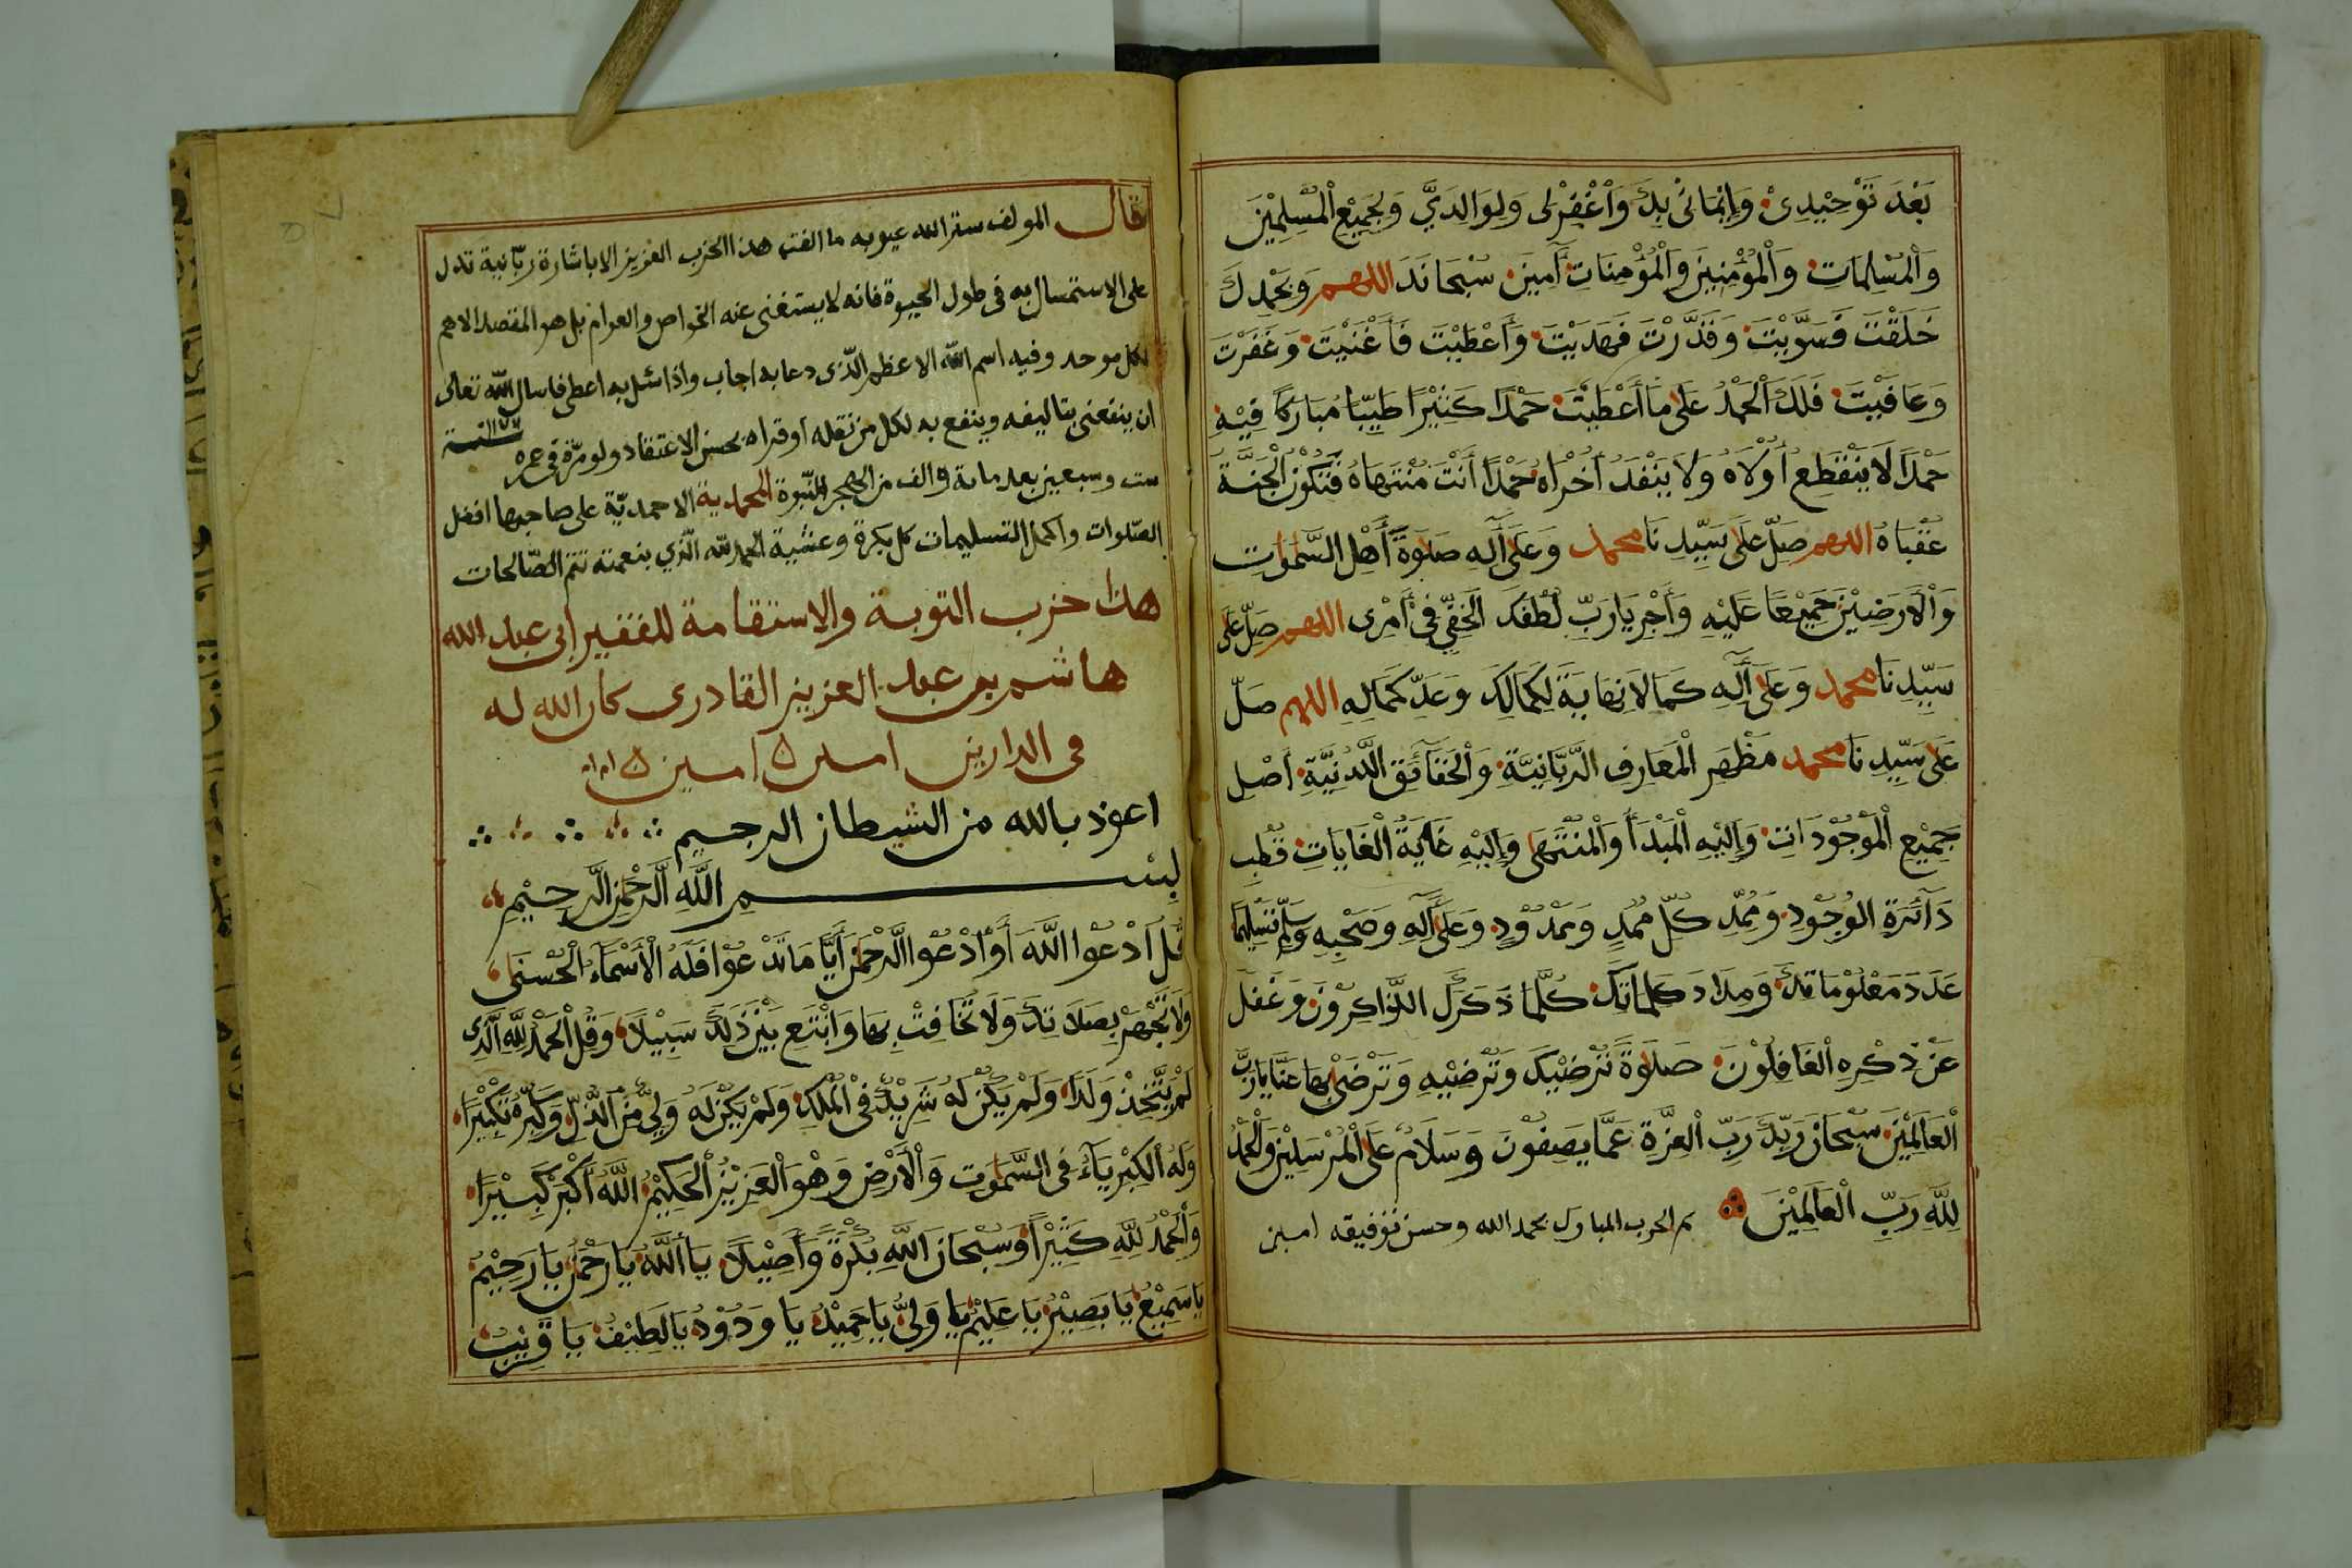 بَعْدَ تَوْحِيْدِىْ وَإِيْمَانِىْ بِكَ وَاْغْفِرْلِى وَلِوَالِدَيَّ وَلِجَمِيْعِ الْمُسْلِمِيْنَ
وَالْمُسْلِمَاتِ وَالْمُؤْمِنِيْنَ وَالْمُؤْمِنَاتِ آمِيَن سُبْحَانَكَ اللهم وَبِحَمْدِكَ
خَلَقْتَ فَسَوَّيْتَ وَقَدَّرْتَ فَهَدَيْتَ وَأَعْطَيْتَ فَأَغْنَيْتَ وَغَفَرْتَ
وَعَافَيْتَ فَلَكَ الْحَمْدُ عَلَى مَا أَعْطَيْتَ حَمْدًا كَثِيْرًا طَيِّبًا مُبَارَكًا فِيْهِ
حَمْدًا لَا يَنْقَطِعُ أُوْلَاهُ وَلَا يَنْفَدُ أُخْرَاهُ حَمْدًا أَنْتَ مُنْتَهَاهُ فَتَكُوْنُ الْجَنَّةُ
عُقْبَاهُ اللهم صَلِّ عَلَى سَيِّدِنَا محمد وَعَلَى آلِهِ صَلَوةَ أَهْلِ السَّمٰوٰتِ
وَالْأَرَضِيْنَ جَمِيْعًا عَلَيْهِ وَأَجْرِ يَارَبِّ لُطْفَكَ الْخَفِّي فِىْ أَمْرِى اللهم صَلِّ عَلَى
سَيِّدِنَا محمد وَعَلَى آلِهِ كَمَا لَا نِهَايَةَ لِكَمَالِكَ وَعَدَّ كَمَالِهِ اللهم صَلِّ
عَلَى سَيِّدِنَا محمد مَظْهَرِ الْمَعَارِفِ الرَّبَّانِيَّةِ وَالْحَقَآئِقِ اللَّدُنِّيَّةِ أَصْلِ
جَمِيْعِ الْمَوْجُوْدَاتِ وَإِلَيْهِ الْمَبْدَأُ وَالْمُنْتَهَى وَإِلَيْهِ غَايَةُ الْغَايَاتِ قُطْبِ
دَآئِرَةِ الوُجُوْدِ وَمُمِدِّ كُلِّ مُمِدٍّ وَمَمْدُوْدٍ وَعَلَى آلِهِ وَصَحْبِهِ وَسَلِّمْ تَسْلِيْمًا
عَدَدَ مَعْلُوْمَاتِكَ وَمِدَادَ كَلِمَاتِكَ كُلَّمَا ذَكَرَكَ الذَّاكِرُوْنَ وَغَفَلَ
عَنْ ذِكْرِهِ الْغَافِلُوْنَ صَلَاوةً تُرْضِيْكَ وَتُرْضِيْهِ وَتَرْضَى بِهَا عَنَّا يَارَبَّ
الْعَالَمِيْنَ سُبْحَانَ رَبِّكَ رَبِّ الْعِزَّةِ عَمَّا يَصِفُوْنَ وَسَلَامٌ عَلَى الْمُرْسَلِيْنَ وَالْحَمْدُ
لِلَّهِ رَبِّ الْعَالَمِيْنَ تم الحزب المبارك بحمد الله وحسن توفيقه امين
قال المولف ستر الله عيوبه ما الفت هذا الحزب العزيز الا باشارة ربّانية تدل
على الاستمساك به فى طول الحيوة فانه لا يستغنى عنه الخواص والعوام بل هو المقصد الاهم
لكل موحد وفيه اسم الله الاعظم الّذى دعا به اجاب واذا سُئل به اعطى فاسال الله تعالى
ان ينفعنى بتاليفه وينفع به لكل من نقله اوقراه بحسن الاعتقاد ولو مرّة فى عمره
ست وسبعين بعد ماىة والف من الهجر النّبوة المحمدية الاحمديّة على صاحبها افضل
الصّلوات واكمل التسليمات كل بكرة وعشية الحمد لله الّذي بنعمته تتم الصّالحات
هذا حزب التوبة والاستقامة للفقير ابى عبد الله
هاشم بن عبد العزيز القادرى كان الله له
فى الدارين امين امين
اعوذ بالله من الشيطان الرجيم
بِسْمِ اللَّهِ الرَّحْمَنِ الرَّحِيْمِ
قُلِ ادْعُوا اللَّهَ أَوِ ادْعُوا الرَّحْمَنَ أَيًّا مَا تَدْعُوْا فَلَهُ الْأَسْمَآءُ الْحُسْنَى
وَلَا تَجْهَرْ بِصَلَاتِكَ وَلَا تُخَافِتْ بِهَا وَابْتَغِ بَيْنَ ذَلِكَ سَبِيْلًا وَقُلِ الْحَمْدُ لِلَّهِ الَّذِى
لَمْ يَتَّخِذْ وَلَدًا وَلَمْ يَكُنْ لَهُ شَرِيْكٌ فِى الْمُلْكِ وَلَمْ يَكُنْ لَهُ وَلِيٌّ مِنَ الذُّلِّ وَكَبِّرْهُ تَكْبِيْرًا
وَلَهُ الْكِبْرِيَآءُ فِى السَّمٰوٰتِ وَالْأَرْضِ وَهُوَ الْعَزِيْزُ الْحَكِيْمُ اللَّهُ أَكْبَرُ كَبِيْرًا
وَالْحَمْدُ لِلَّهِ كَثِيْرًا وَسُبْحَانَ اللَّهِ بُكْرَةً وَأَصِيْلًا يَا أَللَّهُ يَا رَحْمَنُ يَا رَحِيْمُ
يَا سَمِيْعُ يَا بَصِيْرُ يَا عَلِيْمُ يَا وَلِىُّ يَا حَمِيْدُ يَا وَدُوْدُ يَا لَطِيْفُ يَا قَرِيْبُ